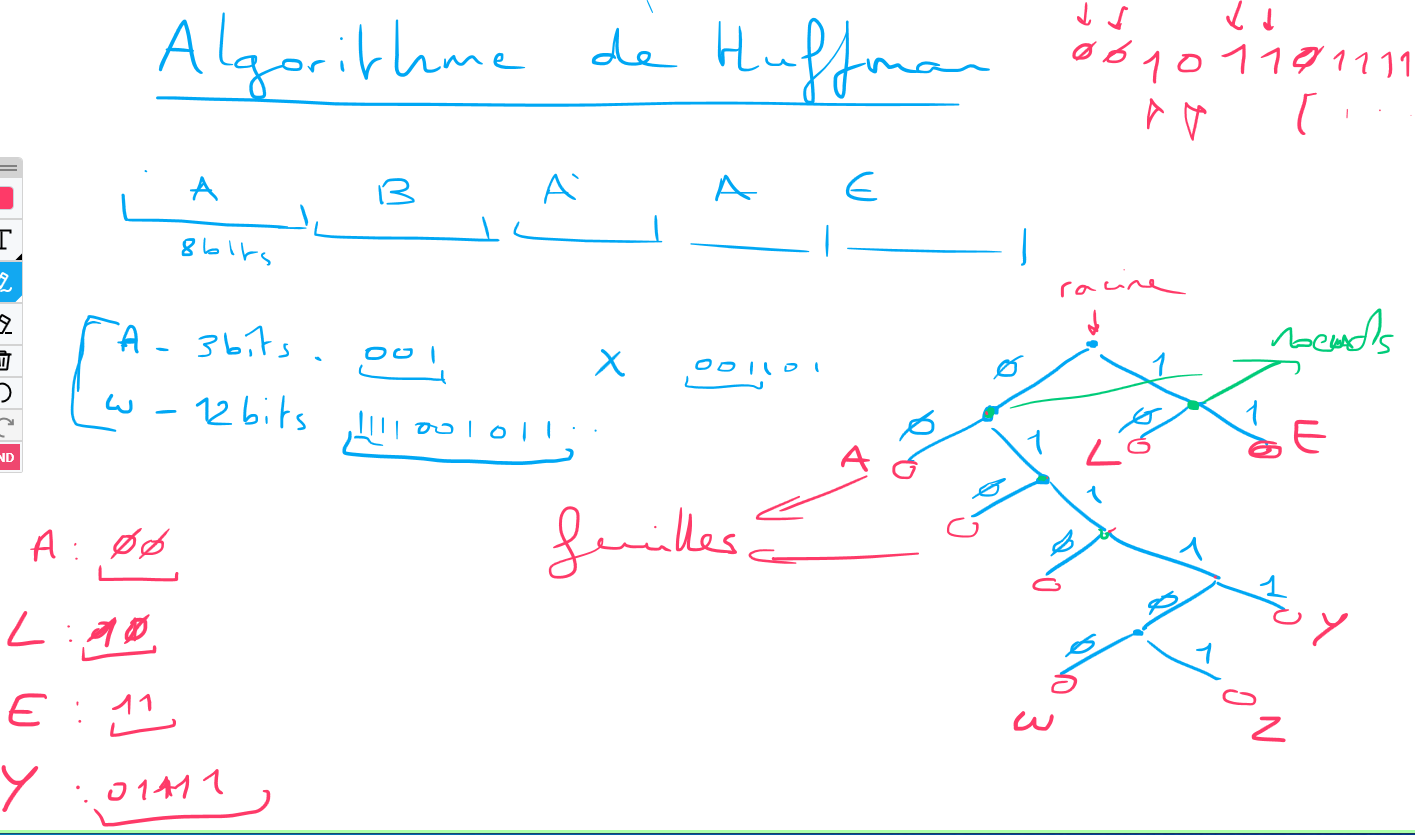 Algorithme de Huffman
0 0 1 0 1 1 0 1 1 1 1
A B A A E
8bits
A - 3bits . 001 X 001101
W - 12bits 1111001011..
racine
noeuds
0 1
0 1 0 1
A L E
0 1
feuilles
0 1
0 1
Y
0 1
W Z
A : 00
L : 10
E : 11
Y : 01111